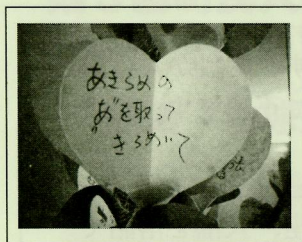 あきらめの
“あ”を取って
“きらめいて